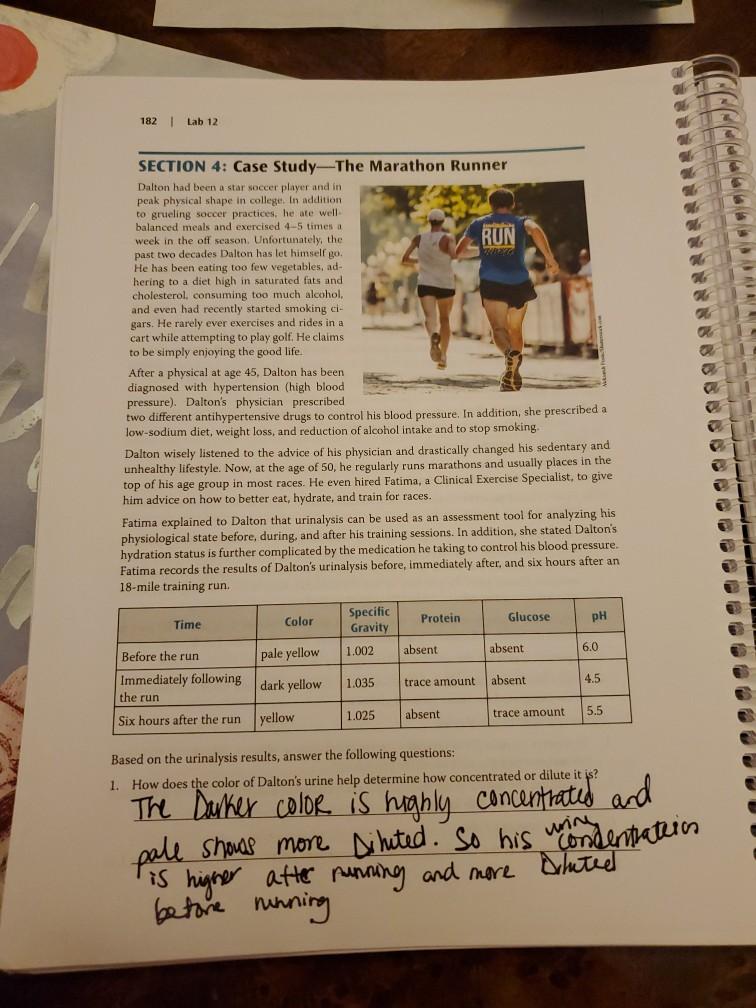 182 | Lab 12
SECTION 4: Case Study—The Marathon Runner
Dalton had been a star soccer player and in
peak physical shape in college. In addition
to grueling soccer practices, he ate well-
balanced meals and exercised 4–5 times a
week in the off season. Unfortunately, the
past two decades Dalton has let himself go.
He has been eating too few vegetables, ad-
hering to a diet high in saturated fats and
cholesterol, consuming too much alcohol,
and even had recently started smoking ci-
gars. He rarely ever exercises and rides in a
cart while attempting to play golf. He claims
to be simply enjoying the good life.
RUN
After a physical at age 45, Dalton has been
diagnosed with hypertension (high blood
pressure). Dalton's physician prescribed
two different antihypertensive drugs to control his blood pressure. In addition, she prescribed a
low-sodium diet, weight loss, and reduction of alcohol intake and to stop smoking.
Dalton wisely listened to the advice of his physician and drastically changed his sedentary and
unhealthy lifestyle. Now, at the age of 50, he regularly runs marathons and usually places in the
top of his age group in most races. He even hired Fatima, a Clinical Exercise Specialist, to give
him advice on how to better eat, hydrate, and train for races.
Fatima explained to Dalton that urinalysis can be used as an assessment tool for analyzing his
physiological state before, during, and after his training sessions. In addition, she stated Dalton's
hydration status is further complicated by the medication he taking to control his blood pressure.
Fatima records the results of Dalton's urinalysis before, immediately after, and six hours after an
18-mile training run.
Time Color Specific Gravity Protein Glucose pH
Before the run pale yellow 1.002 absent absent 6.0
Immediately following the run dark yellow 1.035 trace amount absent 4.5
Six hours after the run yellow 1.025 absent trace amount 5.5
Based on the urinalysis results, answer the following questions:
1. How does the color of Dalton's urine help determine how concentrated or dilute it is?
The Darker color is highly concentrated and
pale shows more Diluted. So his urine concentration
is higher after running and more Diluted
before running